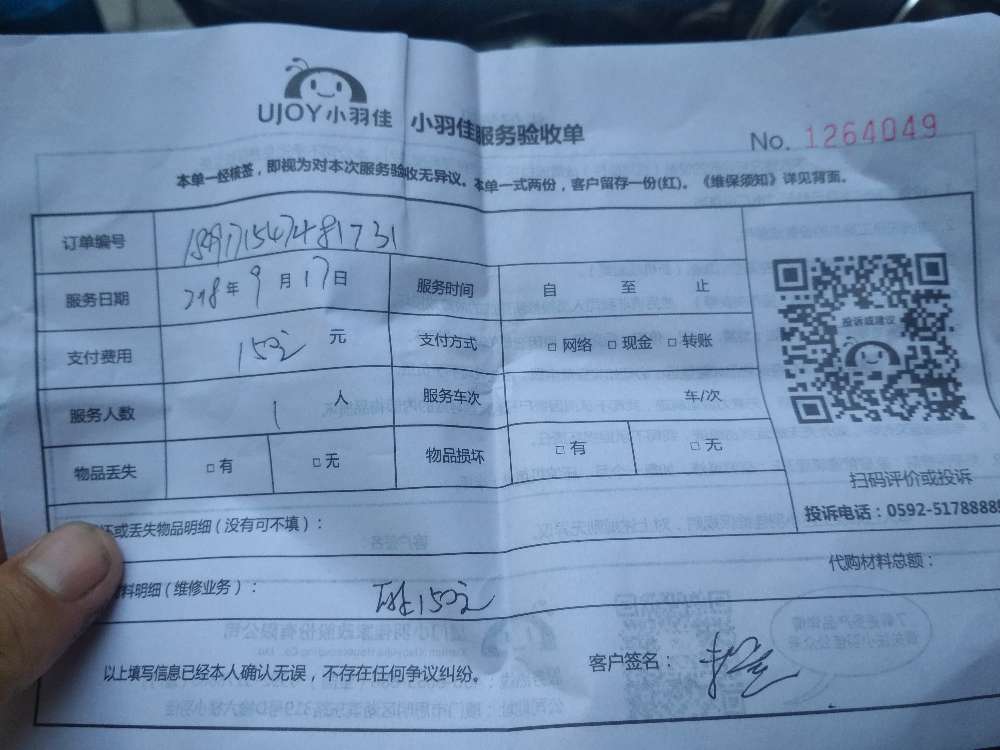 UJOY小羽佳 小羽佳服务验收单
No. 1264049
本单一经核签，即视为对本次服务验收无异议。本单一式两份，客户留存一份(红)。《维保须知》详见背面。
订单编号
服务日期 218年9月17日 服务时间 自 至 止
支付费用 150元 元 支付方式 □网络 □现金 □转账
服务人数 1 人 服务车次 车/次
物品丢失 □有 □无 物品损坏 □有 □无
投诉或建议
扫码评价或投诉
投诉电话：0592-5178888
坏或丢失物品明细(没有可不填)：
料明细(维修业务)： 150元
代购材料总额：
以上填写信息已经本人确认无误，不存在任何争议纠纷。
客户签名：